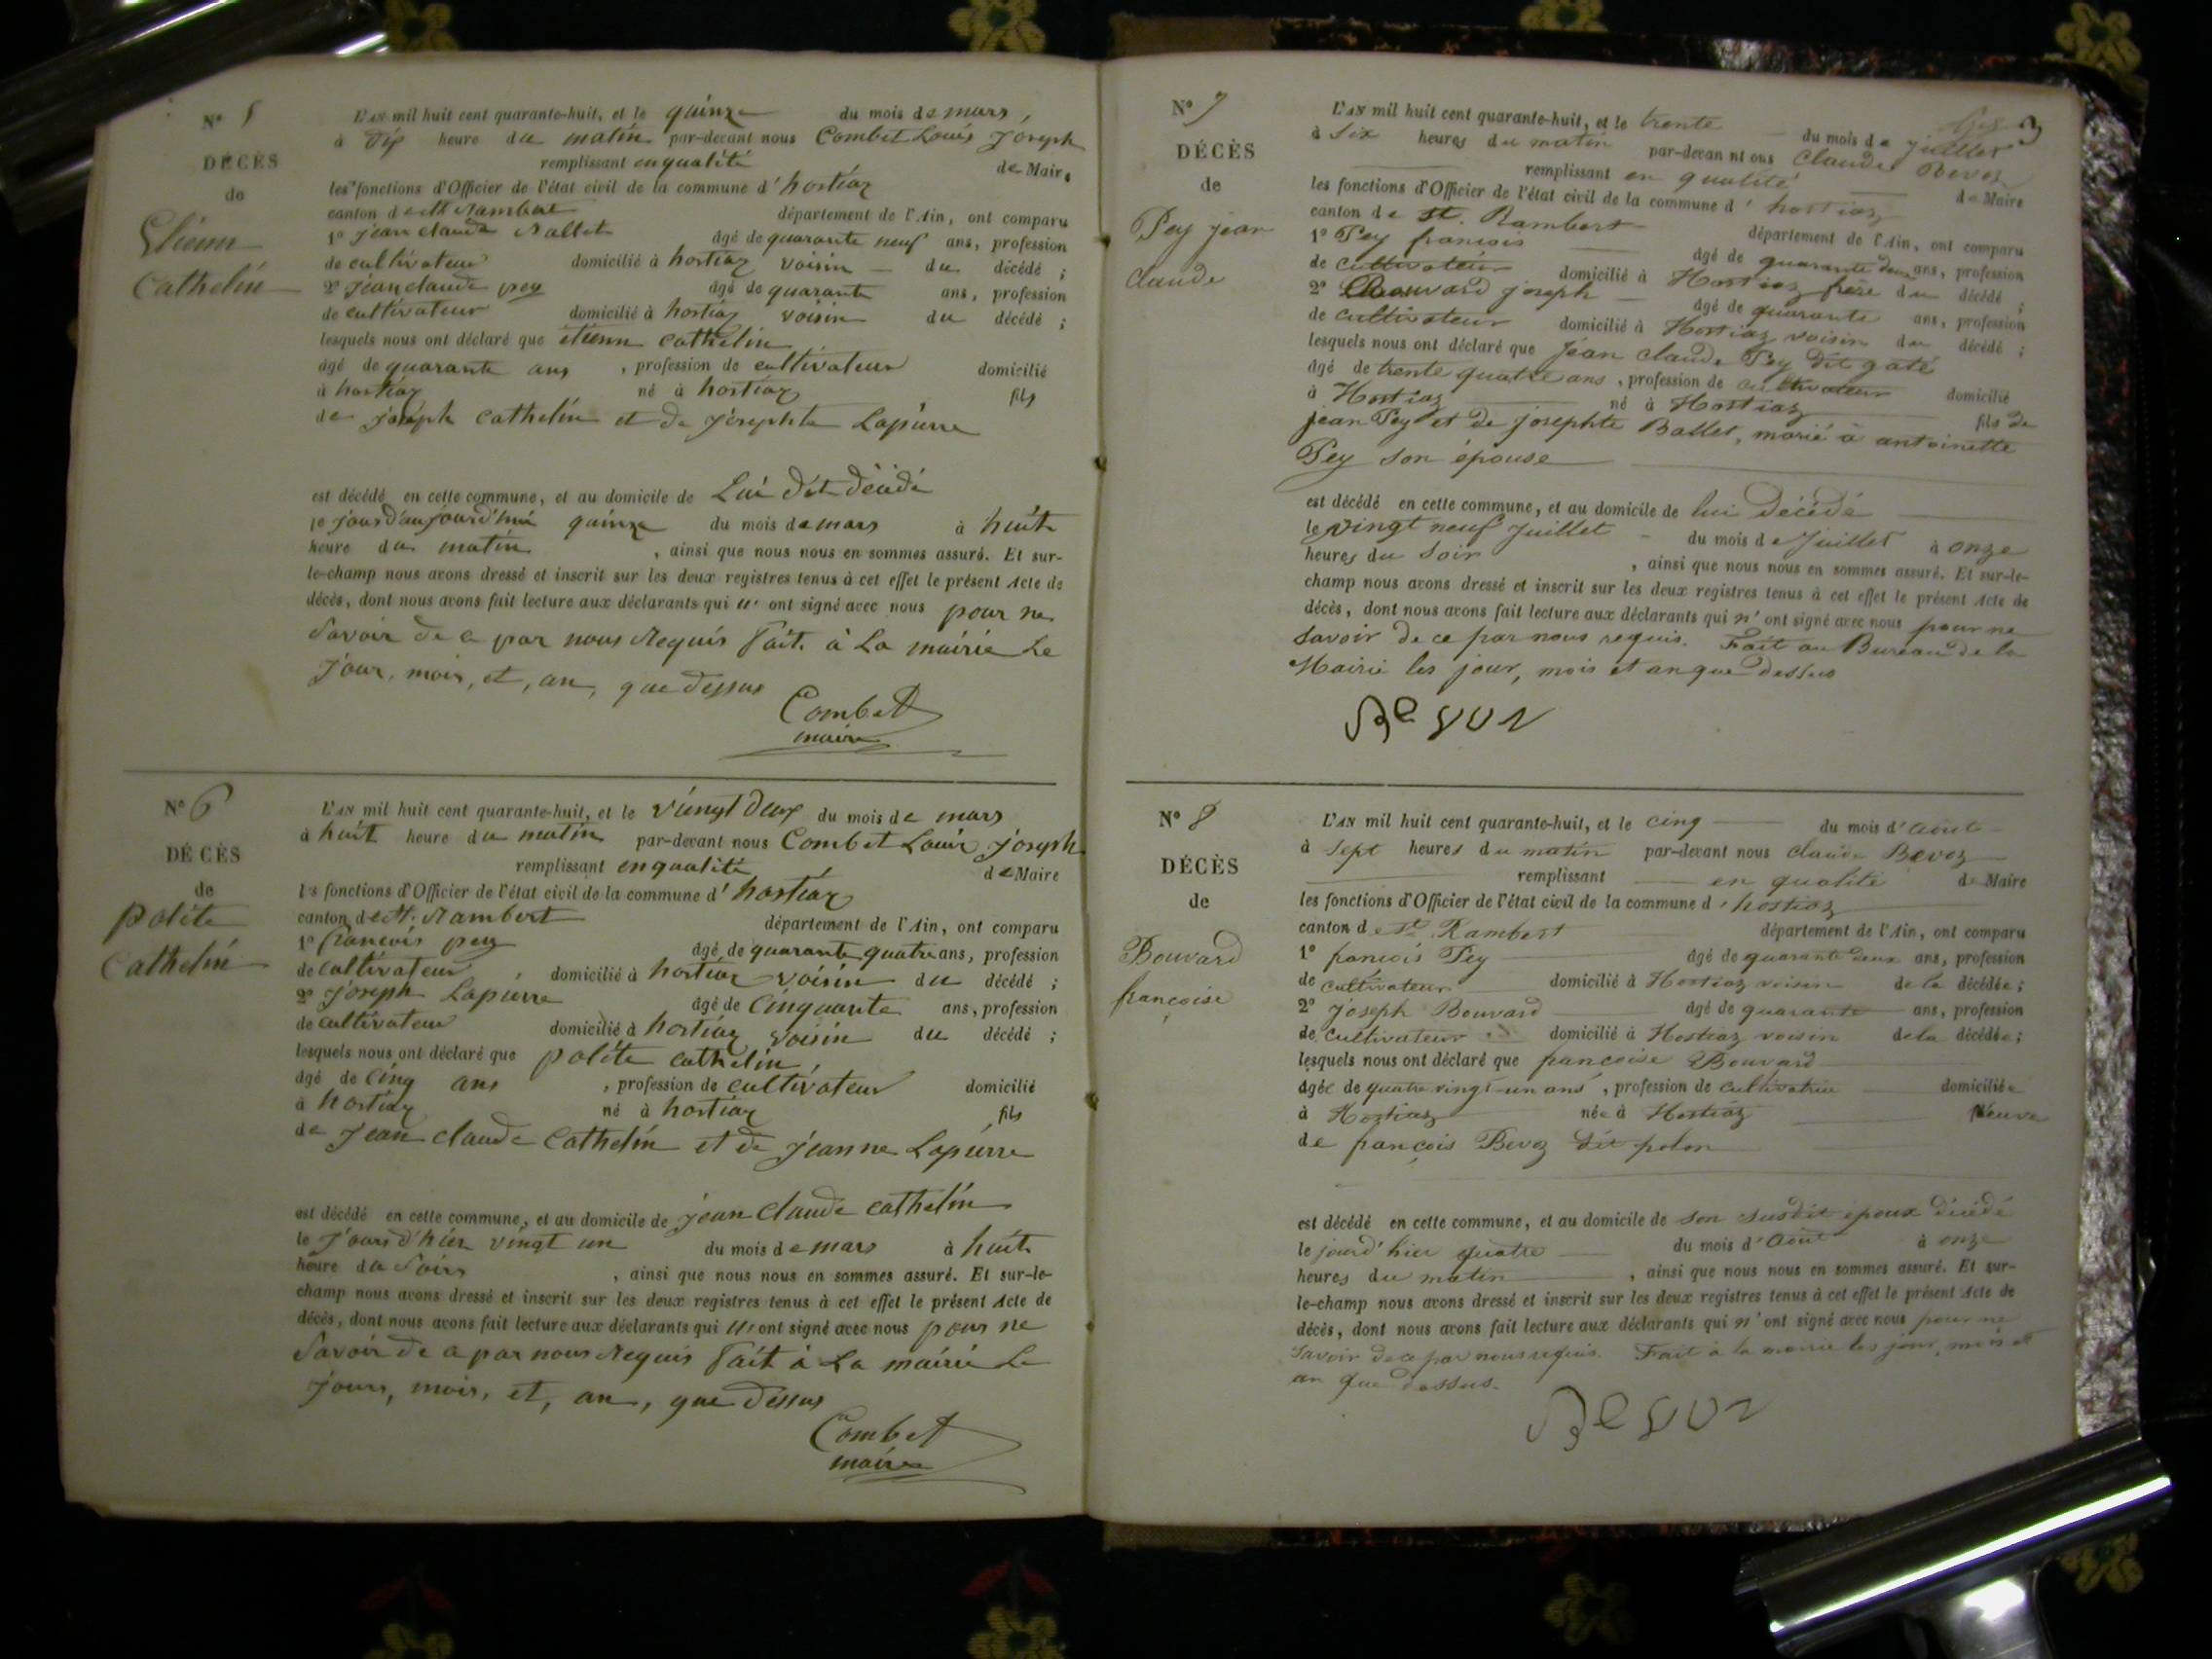 N° 5
DÉCÈS
de
Etienn
Cathelin
L'AN mil huit cent quarante-huit, et le quinze du mois de mars,
à dix heure du matin par-devant nous Combet Louis Joseph
remplissant en qualité de Maire
les fonctions d'Officier de l'état civil de la commune d'hostiaz
canton de st Rambert département de l'Ain, ont comparu
1° jean claude Ballet âgé de quarante neuf ans, profession
de cultivateur domicilié à hostiaz voisin du décédé ;
2° jean claude pey âgé de quarante ans, profession
de cultivateur domicilié à hostiaz voisin du décédé ;
lesquels nous ont déclaré que étienn cathelin
âgé de quarante ans , profession de cultivateur domicilié
à hostiaz né à hostiaz fils
de joseph cathelin et de josephte Lapierre
est décédé en cette commune, et au domicile de Lui dit décédé
le jour d'aujourd'hui quinze du mois de mars à huit
heure du matin , ainsi que nous nous en sommes assuré. Et sur-
le-champ nous avons dressé et inscrit sur les deux registres tenus à cet effet le présent Acte de
décès, dont nous avons fait lecture aux déclarants qui n' ont signé avec nous pour ne
Savoir de ce par nous Requis fait à La mairie Le
jour, mois, et, an, que dessus
Combet
maire
N° 6
DÉCÈS
de
polite
Cathelin
L'AN mil huit cent quarante-huit, et le viengt deux du mois de mars
à huit heure du matin par-devant nous Combet Louis joseph
remplissant en qualité de Maire
les fonctions d'Officier de l'état civil de la commune d'hostiaz
canton de st. Rambert département de l'Ain, ont comparu
1° francois pey âgé de quarante quatre ans, profession
de cultivateur , domicilié à hostiaz voisin du décédé ;
2° joseph Lapierre âgé de Cinquante ans, profession
de cultivateur domicilié à hostiaz voisin du décédé ;
lesquels nous ont déclaré que polite cathelin
âgé de cinq ans , profession de cultivateur domicilié
à hostiaz né à hostiaz fils
de jean claude Cathelin et de jeanne Lapierre
est décédé en cette commune, et au domicile de jean claude cathelin
le jours d'hier vingt un du mois de mars à huit
heure du Soirs , ainsi que nous nous en sommes assuré. Et sur-le-
champ nous avons dressé et inscrit sur les deux registres tenus à cet effet le présent Acte de
décès, dont nous avons fait lecture aux déclarants qui n' ont signé avec nous pour ne
Savoir de ce par nous Requis fait à La mairie Le
jours, mois, et, an, que dessus
Combet
maire
3
N° 7
DÉCÈS
de
Pey jean
claude
L'AN mil huit cent quarante-huit, et le trente du mois de juillet
à Six heures du matin par-devan nt ous Claude Bevoz
remplissant en qualité de Maire
les fonctions d'Officier de l'état civil de la commune d'hostiaz
canton de st. Rambert département de l'Ain, ont comparu
1° Pey francois âgé de quarante deux ans, profession
de cultivateur domicilié à Hostiaz frère du décédé ;
2° Bouvard joseph âgé de quarante ans, profession
de cultivateur domicilié à Hostiaz voisin du décédé ;
lesquels nous ont déclaré que jean claude Pey dit gaté
âgé de trente quatre ans , profession de cultivateur domicilié
à Hostiaz né à Hostiaz fils de
jean Pey et de josephte Ballet, marié à antoinette
Pey son épouse
est décédé en cette commune, et au domicile de lui Décédé
le vingt neuf juillet du mois de juillet à onze
heures du Soir , ainsi que nous nous en sommes assuré. Et sur-le-
champ nous avons dressé et inscrit sur les deux registres tenus à cet effet le présent Acte de
décès, dont nous avons fait lecture aux déclarants qui n' ont signé avec nous pour ne
savoir de ce par nous requis. Fait au Bureau de la
Mairie les jour, mois et an que dessus
Bevoz
N° 8
DÉCÈS
de
Bouvard
françoise
L'AN mil huit cent quarante-huit, et le cinq du mois d'Aout
à sept heures du matin par-devant nous claude Bevoz
remplissant en qualité de Maire
les fonctions d'Officier de l'état civil de la commune d'hostiaz
canton de st Rambert département de l'Ain, ont comparu
1° francois Pey âgé de quarante deux ans, profession
de cultivateur domicilié à Hostiaz voisin de la décédée ;
2° joseph Bouvard âgé de quarante ans, profession
de cultivateur domicilié à Hostiaz voisin de la décédée ;
lesquels nous ont déclaré que francoise Bouvard
âgée de quatre vingt-un ans , profession de cultivatrice domiciliée
à Hostiaz née à Hostiaz Veuve
de françois Bevoz dit polon
est décédé en cette commune, et au domicile de son susdit époux décédé
le jour d'hier quatre du mois d'Aout à onze
heures du matin , ainsi que nous nous en sommes assuré. Et sur-
le-champ nous avons dressé et inscrit sur les deux registres tenus à cet effet le présent Acte de
décès, dont nous avons fait lecture aux déclarants qui n' ont signé avec nous pour ne
savoir de ce par nous requis. Fait à la mairie les jour, mois et
an que dessus.
Bevoz